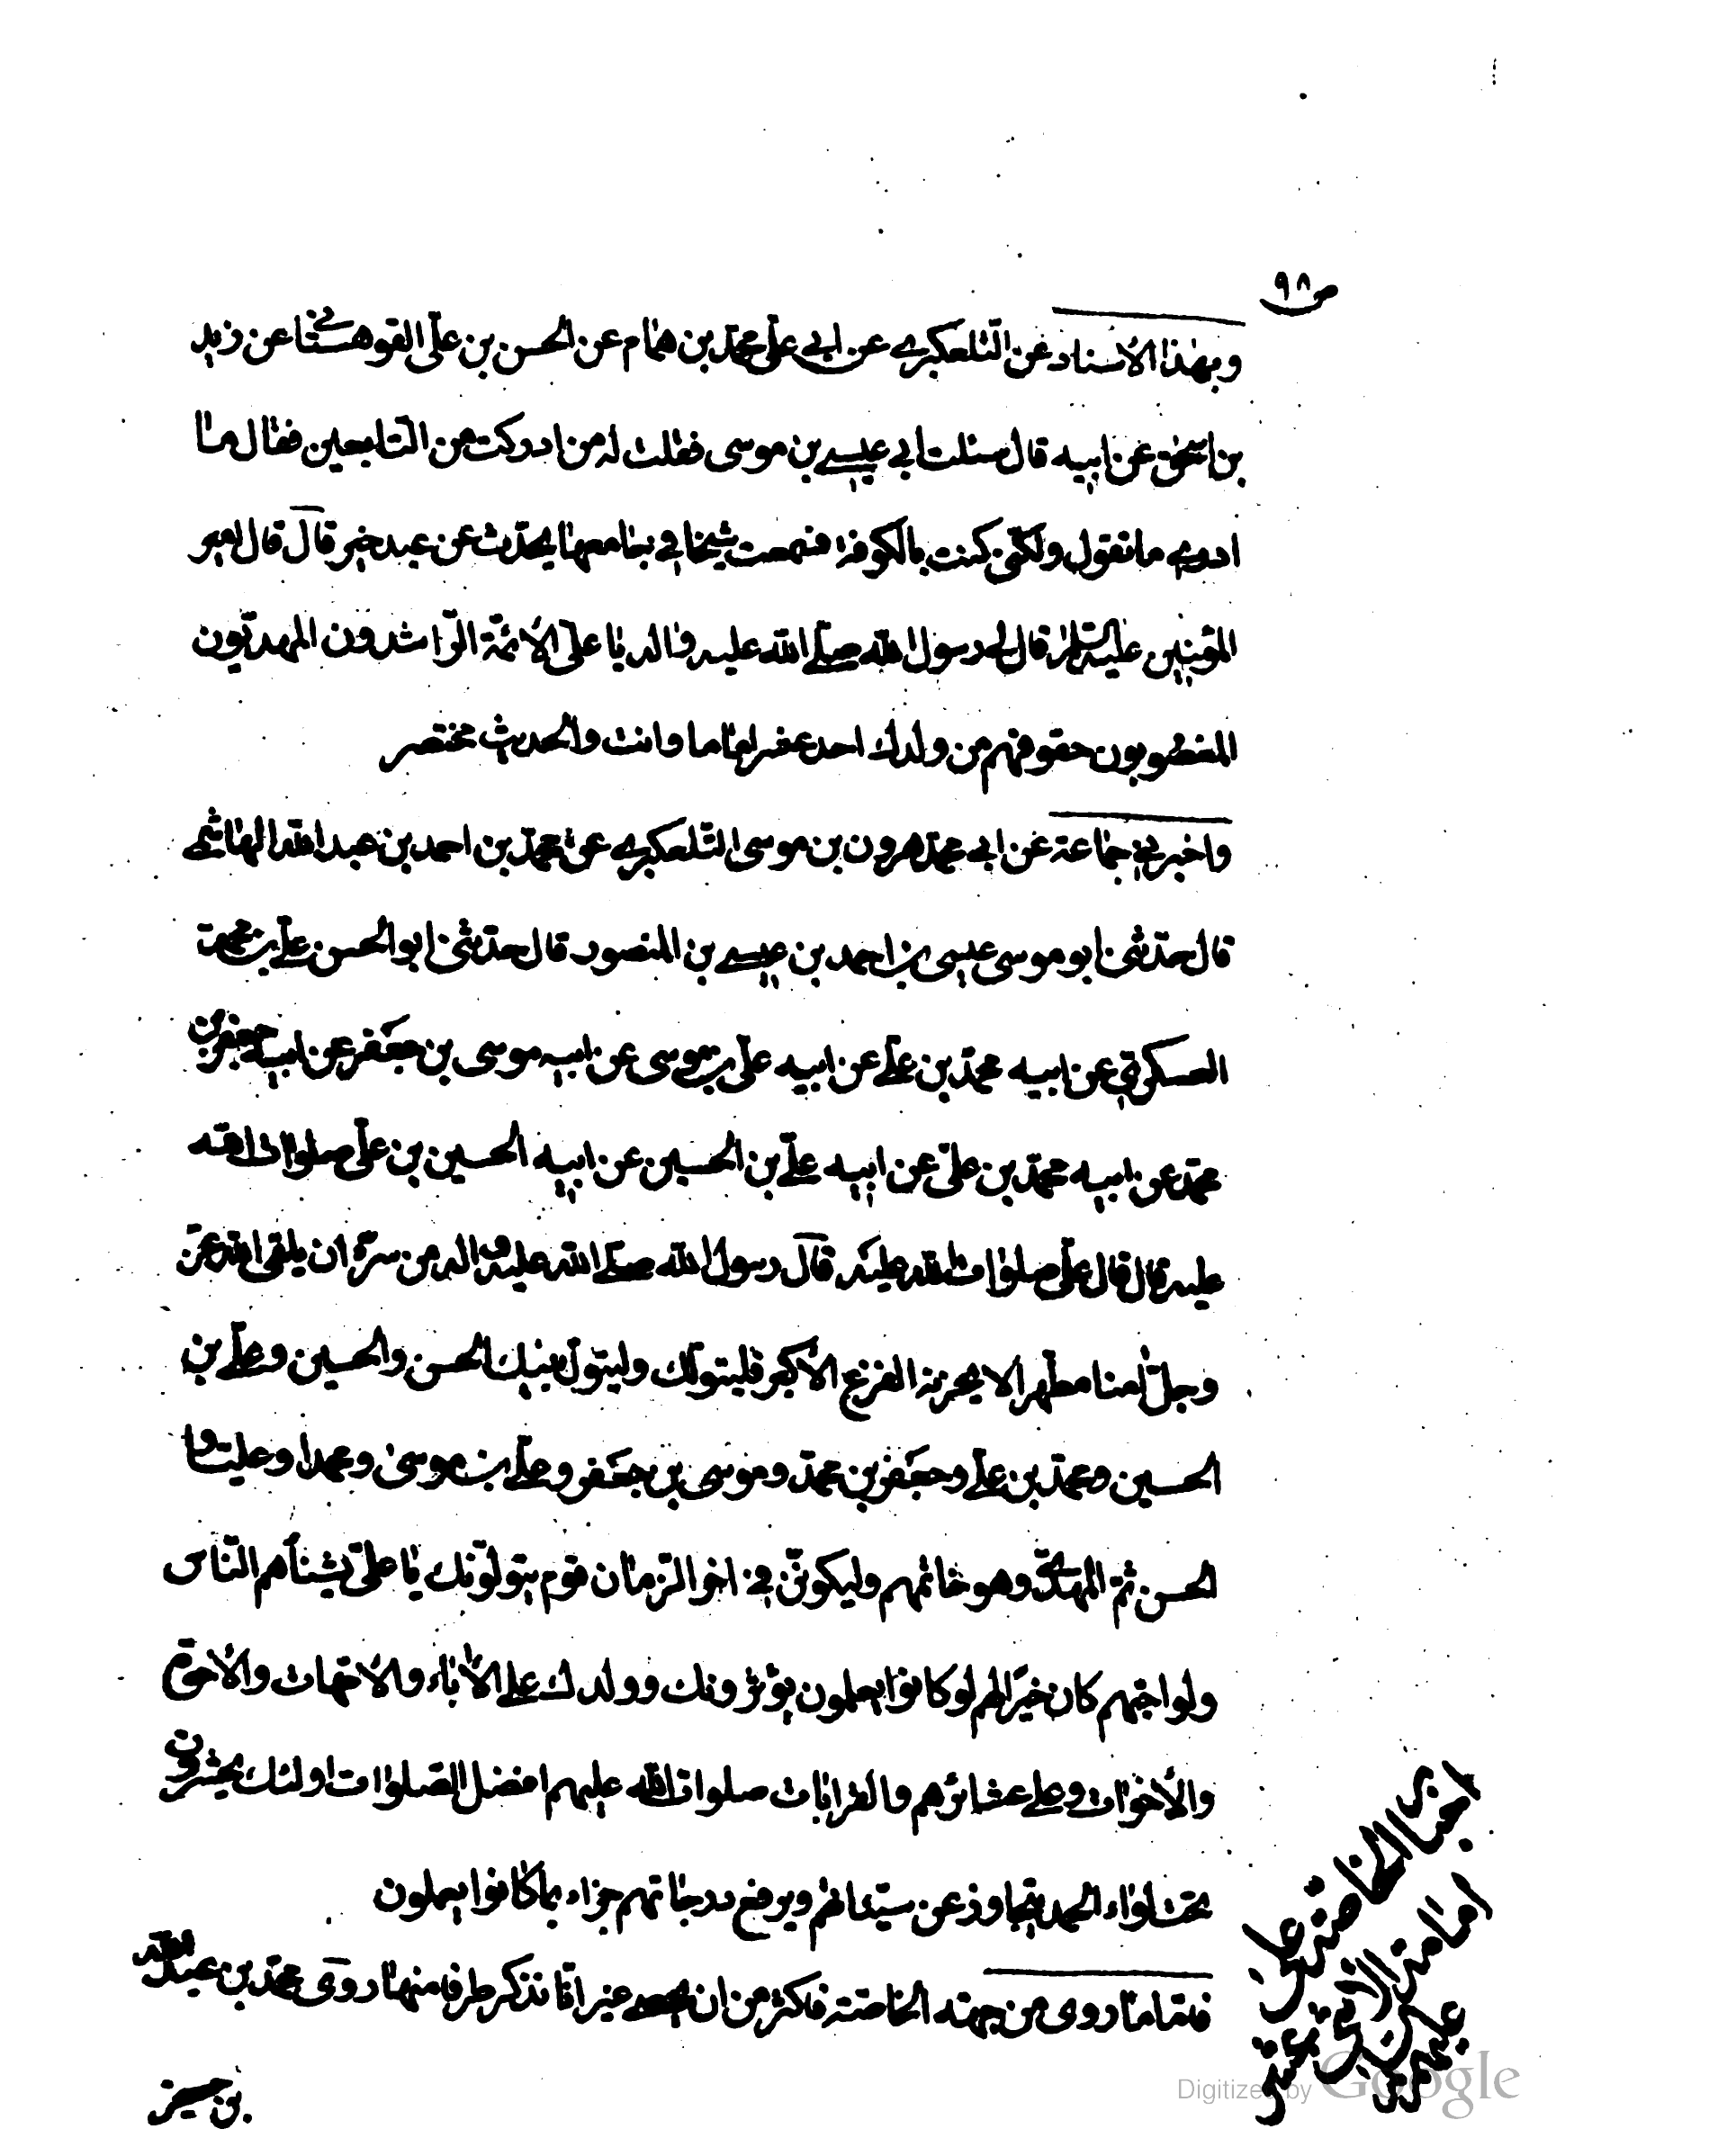 ص ٩٨
وبهذا الاسناد عن التلعكبري عن ابي علي محمد بن همام عن الحسن بن علي القوهستاني عن زيد
بن اسحق عن ابيه قال سئلت ابي عيسى بن موسى فقلت له من ادركت من التابعين فقال ما
ادري ما تقول ولكني كنت بالكوفة فسمعت شيخا في جامعها يحدث عن عبد خير قال قال امير
المؤمنين عليه السلام قال لي رسول الله صلى الله عليه واله يا علي الائمة الراشدون المهديون
المغضوبون حقوقهم من ولدك احد عشر اماما وانت والحديث مختصر
واخبرني جماعة عن ابي محمد هرون بن موسى التلعكبري عن محمد بن احمد بن عبد الله الهاشمي
قال حدثني ابو موسى عيسى بن احمد بن عيسى بن المنصور قال حدثني ابو الحسن علي بن محمد
العسكري عن ابيه محمد بن علي عن ابيه علي بن موسى عن ابيه موسى بن جعفر عن ابيه جعفر بن
محمد عن ابيه محمد بن علي عن ابيه علي بن الحسين عن ابيه الحسين بن علي صلوات الله
عليه قال قال علي صلوات الله عليه قال رسول الله صلى الله عليه واله من سره ان يلقى الله عز
وجل امنا مطهرا لا يحزنه الفزع الاكبر فليتولك وليتول بنيك الحسن والحسين وعلي بن
الحسين ومحمد بن علي وجعفر بن محمد وموسى بن جعفر وعلي بن موسى ومحمدا وعليا و
الحسن ثم المهدي وهو خاتمهم وليكونن في اخر الزمان قوم يتولونك يا علي يشنأهم الناس
ولو احبهم كان خيرا لهم لو كانوا يعلمون يؤثرونك وولدك على الاباء والامهات والاخوة
والاخوات وعلى عشائرهم والقرابات صلوات الله عليهم افضل الصلوات اولئك يحشرون
تحت لواء الحمد يتجاوز عن سيئاتهم ويرفع درجاتهم جزاء بما كانوا يعملون
فاما ما روى من جهة الخاصة فاكثر من ان يحصى غير انا نذكر طرفا منها روى محمد بن عبد الله
اخبار الخاصة على
امامة الاثنى عشر
بن